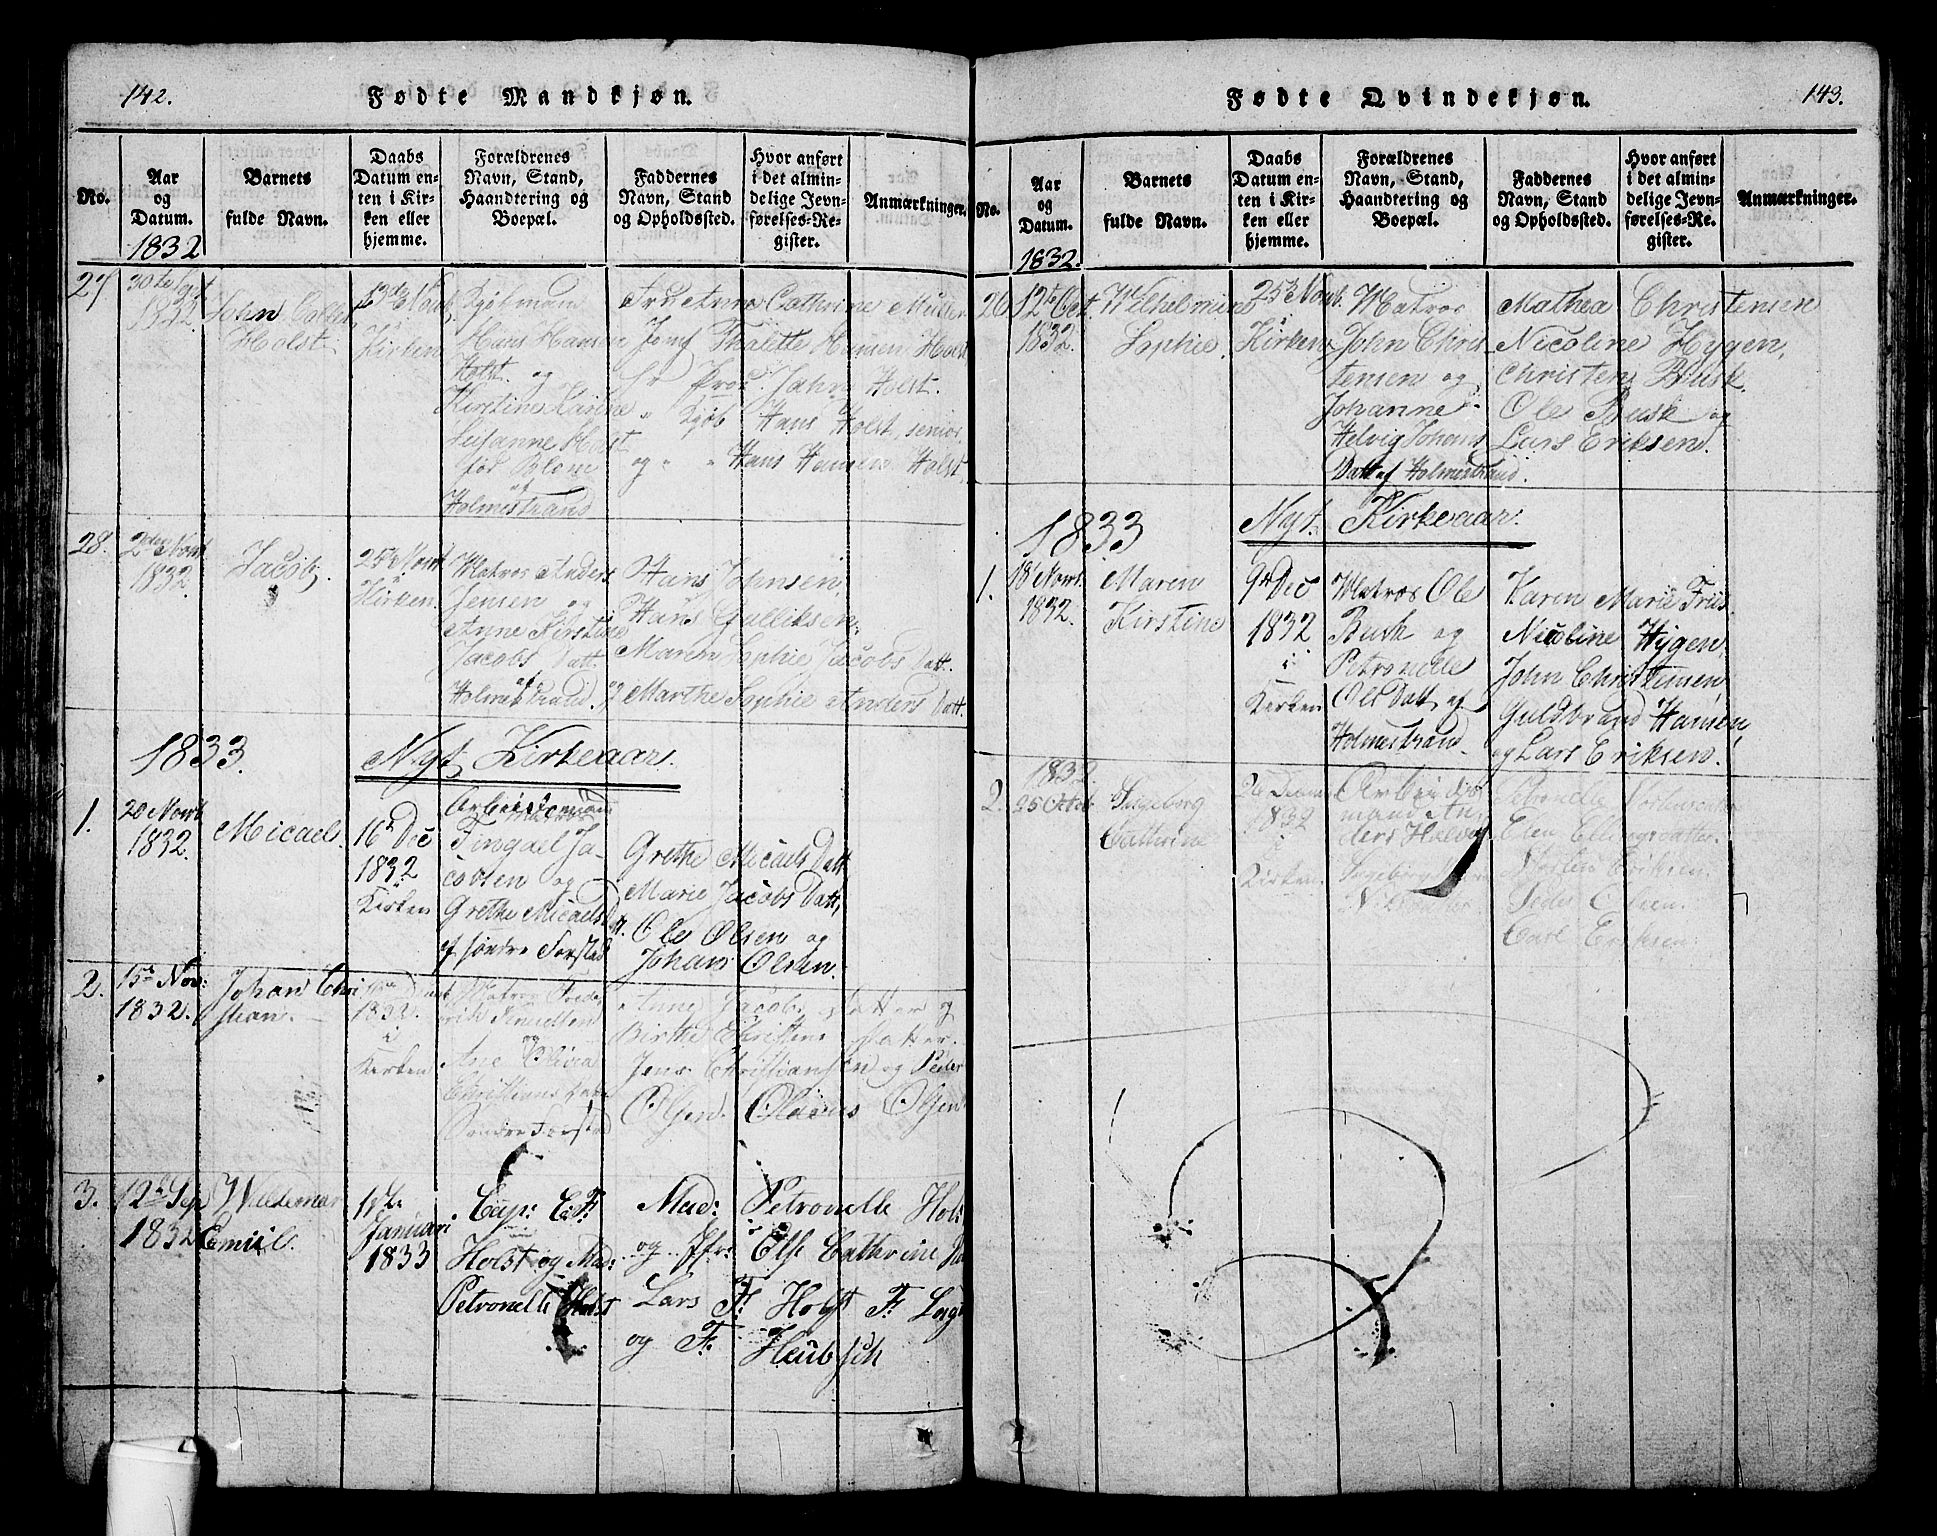 142.
Fødte Mandkjøn.
No.
Aar
og
Datum.
1832
Barnets
fulde Navn.
Daabs
Datum en-
ten i Kir-
ken eller
hjemme.
Forældrenes
Navn, Stand,
Haandtering og
Boepæl.
Faddernes
Navn, Stand
og Opholdssted.
Hvor anført
i det almin-
delige Jevn-
førelses-Re-
gister.
Anmærkninger.
27
30te Sept
1832
John
Holst
Kirken
Kjøbmand
Hans Hansen
Holst og
Kirstine Karine
Susanne Holst
før Blom
af
Holmestrand
Fru Anne Cathrine Müller
Jomf Thalette Hansen Holst
Hr Prou. Jahn Holst.
" Kjøb Hans Holst, senior.
og " " Hans Hansen Holst.
28.
2den Novb
1832.
Jacob.
25de Novb
i
Kirken.
Matros Anders
Jensen og
Anne Kirstine
Jacobs Datt.
af
Holmestrand.
Hans Johnsen,
Hans Gulliksen.
Maren Sophie Jacobs Datt.
og Marthe Sophie Anders Datt.
1833.
Nyt Kirkeaar.
1.
20 Novb
1832.
Micael.
16r Dec
1832
i
Kirken
Arbeidsmand
Fingael Ja-
cobsen og
Grethe Micaels Datt.
af søndre Forstad
Grethe Micaels Datt
Marie Jacobs Datt,
Ole Olsen og
Johans Olsen.
2.
15r Nov:
1832.
Johan Chri
stian.
1832.
i
Kirken
Matros Frede
rik Knudsen
og
Ane Olivia
Christians
Søndre Forstad
Anne Jacobs datter og
Birthe Christens datter.
Jens Christiansen og Peder
Olsen. Olaus Olsen
3.
12te Sep
1832
Willemar
Emiil.
Januari
1833
Cap: E. F.
Holst og Mad:
Petronelle Holst
Mad: Petronelle Holst
og Jfr: Else Cathrine
Lars F: Holst F:
og F: Heübsch
143.
Fødte Qvindekjøn.
No.
Aar
og
Datum.
1832.
Barnets
fulde Navn.
Daabs
Datum en-
ten i Kir-
ken eller
hjemme.
Forældrenes
Navn, Stand,
Haandtering og
Boepæl.
Faddernes
Navn, Stand
og Opholdssted.
Hvor anført
i det almin-
delige Jevn-
førelses-Re-
gister.
Anmærkninger.
26
12te Oct.
1832.
Wilhelmine
Sophie.
25r Novb.
Kirken
Matros
John Chris-
tensen og
Johanne
Helvig Johans
Datt af Holmestrand.
Mathea Christensen
Nicoline Hygen,
Christen Busk
Ole Busk og
Lars Eriksen.
1833
Nyt Kirkeaar.
1.
18 Novb.
1832.
Maren
Kirstine
9r Dec
1832
i
Kirken
Matros Ole
Busk og
Petronelle
Ols Datt af
Holmestrand.
Karen Marie Friis.
Nicoline Hygen,
John Christensen,
Guldbrand Hansen,
og Lars Eriksen.
2.
1832.
25 Octob
Ingeborg
Cathrine
26 Decem
1832
i
Kirken.
Arbeids
mand An
ders Halvor
Ingeborg
Petronelle
Elen Ellingsdatter.
Eriksen.
Peder Olsen.
Carl Eriksen.